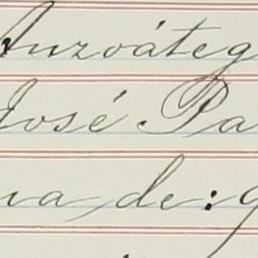 Anzoáteg
José Pa
na de: